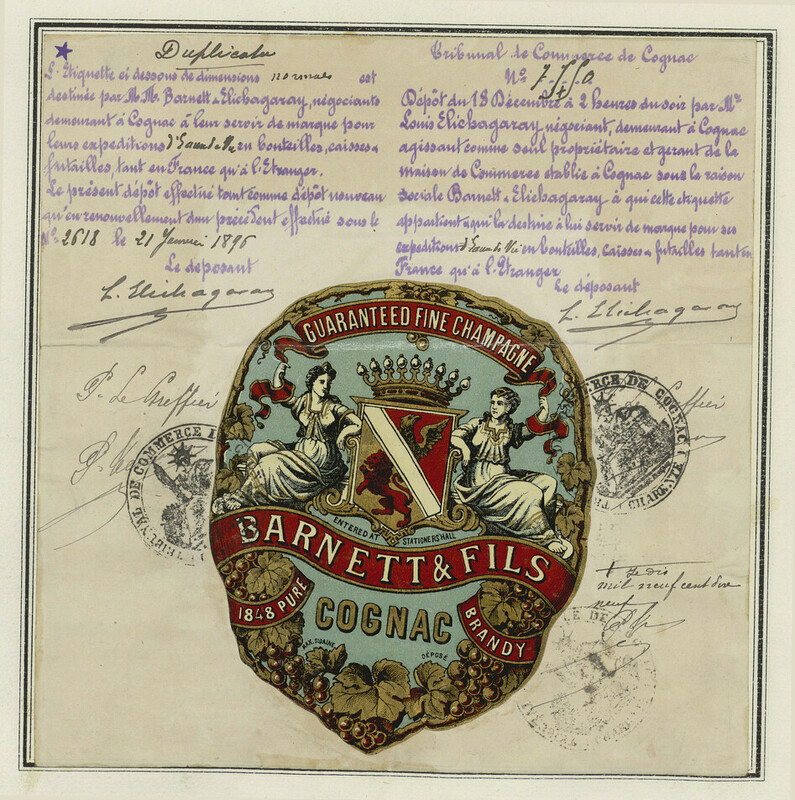 Duplicata
L'Etiquette ci dessous de dimensions normales est
destinée par M.M. Barnett & Elichagaray, négociants
demeurant à Cognac à leur servir de marque pour
leurs expeditions d'Eaux de Vie en bouteilles, caisses &
futailles, tant en France qu'à l'Etranger.
Le présent dépôt effectué tant comme dépôt nouveau
qu'en renouvellement d'un précédent effectué sous le
No. 2618 le 21 Janvier 1896
Le déposant
L. Elichagaray
P. Le Greffier
Tribunal de Commerce de Cognac
No
Dépôt du 18 Décembre à 2 heures du soir par Mr
Louis Elichagaray, négociant, demeurant à Cognac
agissant comme seul propriétaire et gerant de la
maison de Commerce etablie à Cognac sous la raison
sociale Barnett & Elichagaray à qui cette etiquette
appartient & qui la destine à lui servir de marque pour ses
expeditions d'Eaux de Vie en bouteilles, caisses & futailles tant en
France qu'à l'Etranger
Le déposant
L. Elichagaray
Greffier
GUARANTEED FINE CHAMPAGNE
ENTERED AT STATIONERS HALL
BARNETT & FILS
1848 PURE
COGNAC
BRANDY
DÉPOSÉ
DE COMMERCE
DE COGNAC
CHARENTE
Je dis
mil neuf cent
neuf